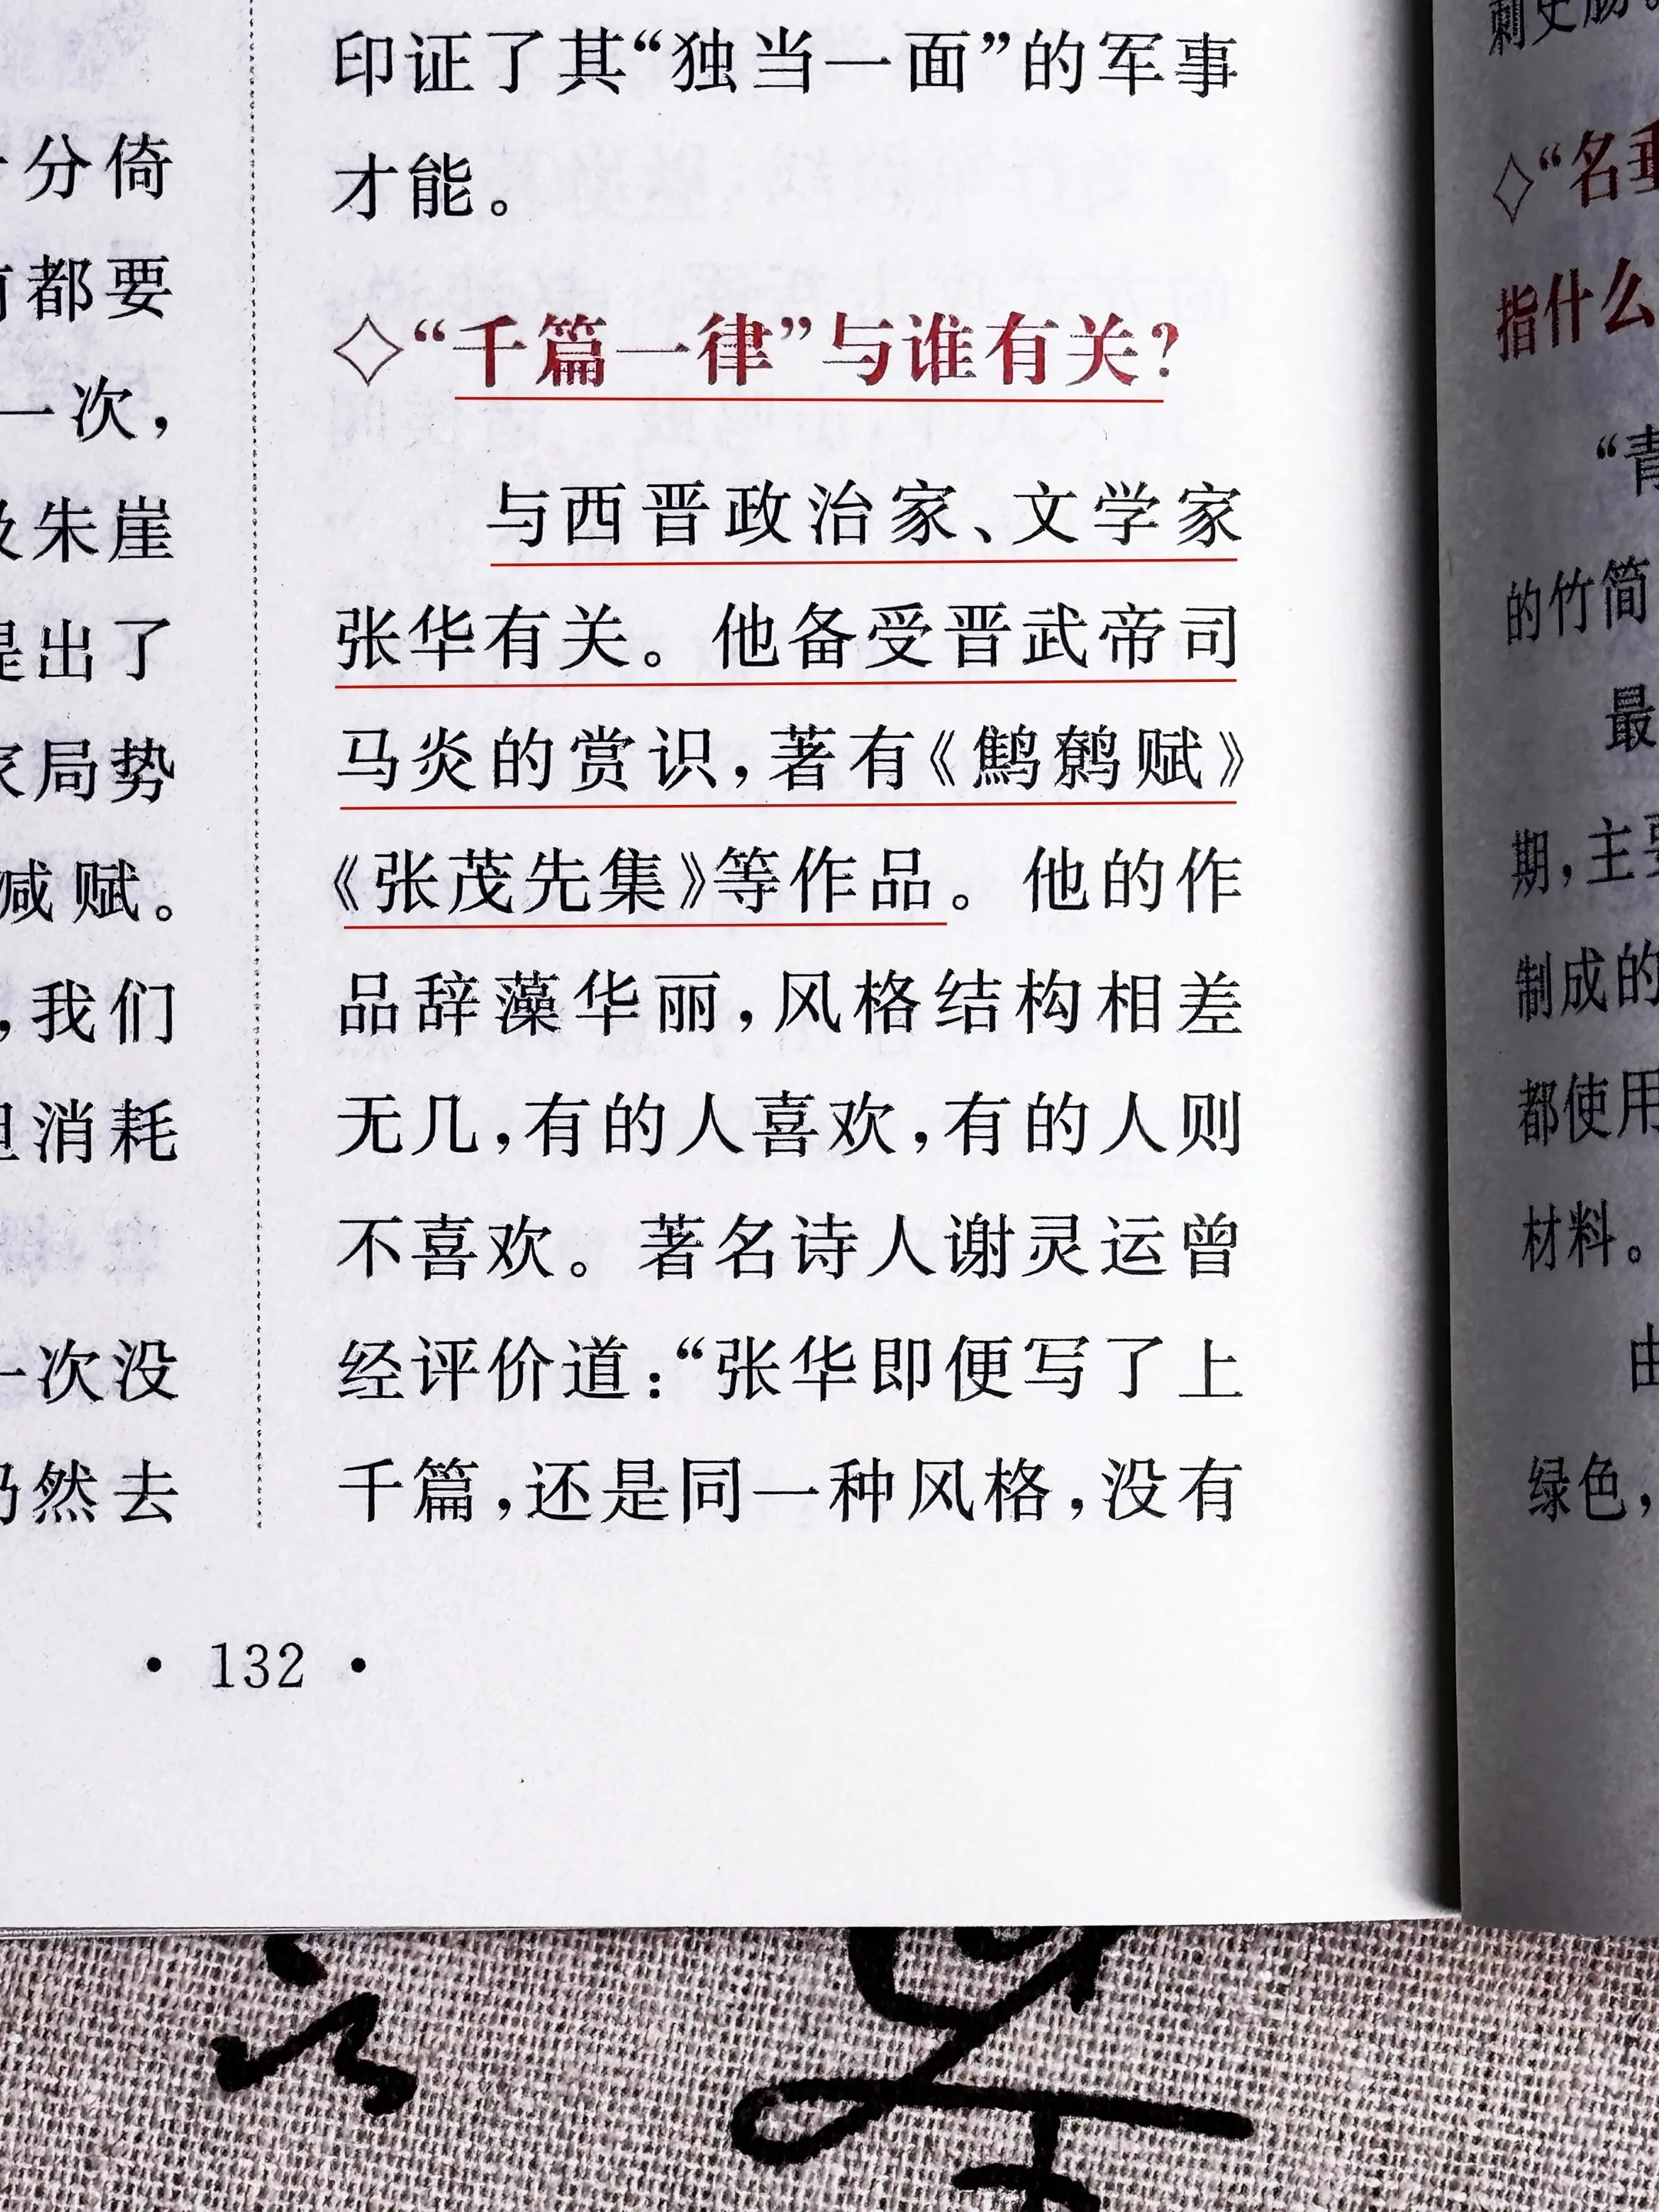 分倚
都要
一次，
朱崖
出了
局势
减赋。
，我们
消耗
一次没
然去
印证了其“独当一面”的军事
才能。
◇“千篇一律”与谁有关？
与西晋政治家、文学家
张华有关。他备受晋武帝司
马炎的赏识，著有《鹪鹩赋》
《张茂先集》等作品。他的作
品辞藻华丽，风格结构相差
无几，有的人喜欢，有的人则
不喜欢。著名诗人谢灵运曾
经评价道：“张华即便写了上
千篇，还是同一种风格，没有
· 132 ·
◇“名
指什么
“青
的竹简
最
期，主要
制成的
都使用
材料。
由
绿色，